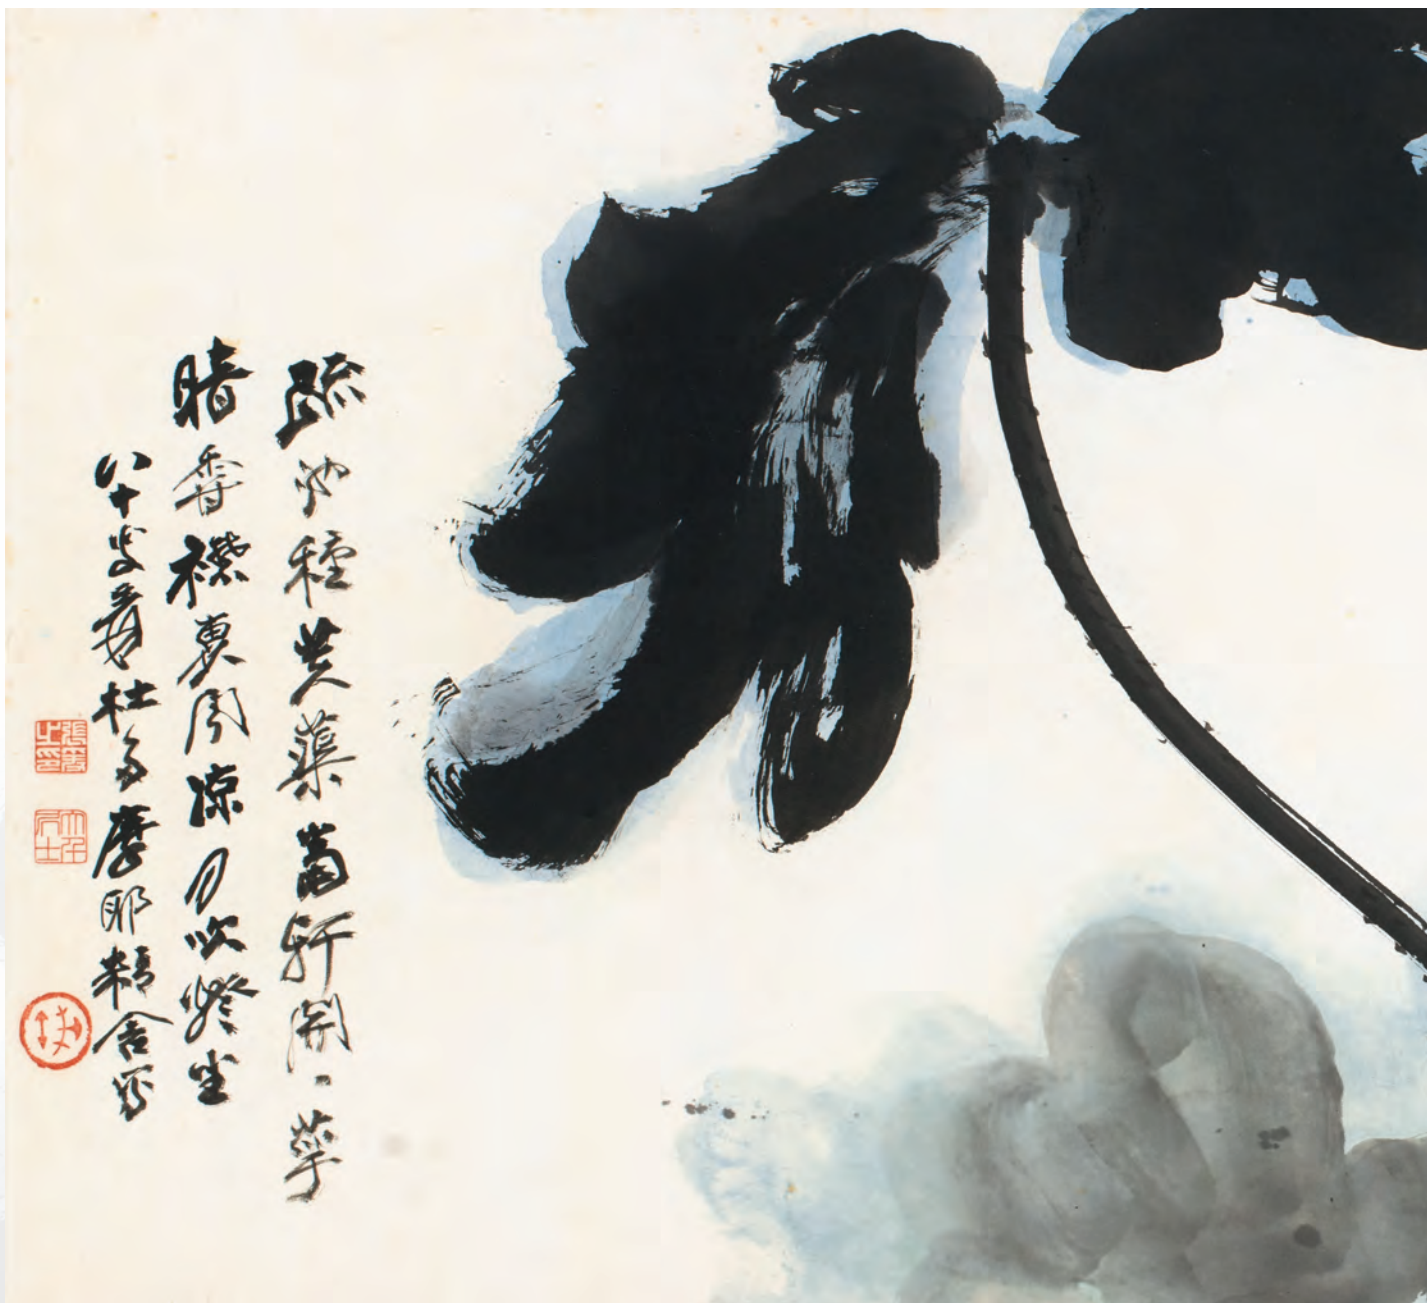 疏池種芙蕖當軒開一萼
暗香襟裏聞涼月吹燈坐
八十叟爰杜多摩耶精舍寫
張爰之印
大千居士